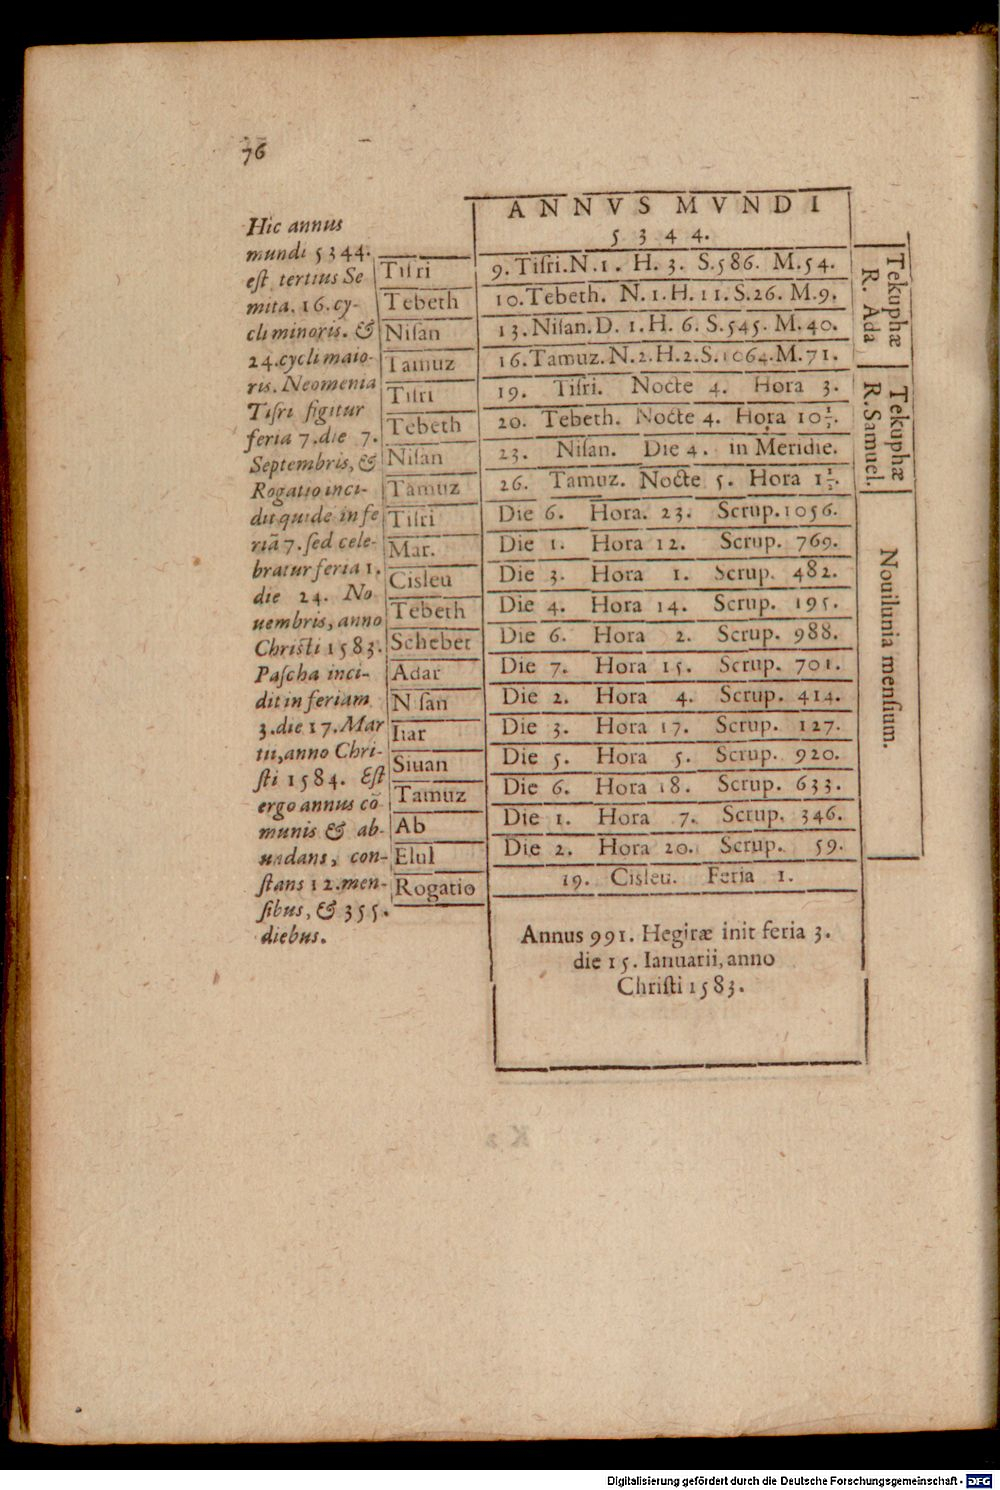 76
Hic annus
mundi 5344.
est tertius Se
mita. 16. cy-
cli minoris. &
24. cycli maio-
ris. Neomenia
Tisri figitur
feria 7. die 7.
Septembris, &
Rogatio inci-
dit quidē in fe
riã 7. sed cele-
bratur feria 1.
die 24. No
uembris, anno
Christi 1583.
Pascha inci-
dit in feriam
3. die 17. Mar
tii, anno Chri-
sti 1584. Est
ergo annus cō
munis & ab-
undans, con-
stans 12. men-
sibus, & 355.
diebus.
ANNVS MVNDI
5344.
Tisri 9. Tisri. N. 1. H. 3. S. 586. M. 54.
Tebeth 10. Tebeth. N. 1. H. 11. S. 26. M. 9.
Nisan 13. Nisan. D. 1. H. 6. S. 545. M. 40.
Tamuz 16. Tamuz. N. 2. H. 2. S. 1064. M. 71.
Tekuphæ
R. Ada
Tisri 19. Tisri. Nocte 4. Hora 3.
Tebeth 20. Tebeth. Nocte 4. Hora 10 1/2.
Nisan 23. Nisan. Die 4. in Meridie.
Tamuz 26. Tamuz. Nocte 5. Hora 1 1/2.
Tekuphæ
R. Samuel.
Tisri Die 6. Hora. 23. Scrup. 1056.
Mar. Die 1. Hora 12. Scrup. 769.
Cisleu Die 3. Hora 1. Scrup. 482.
Tebeth Die 4. Hora 14. Scrup. 195.
Schebet Die 6. Hora 2. Scrup. 988.
Adar Die 7. Hora 15. Scrup. 701.
N san Die 2. Hora 4. Scrup. 414.
Iiar Die 3. Hora 17. Scrup. 127.
Siuan Die 5. Hora 5. Scrup. 920.
Tamuz Die 6. Hora 18. Scrup. 633.
Ab Die 1. Hora 7. Scrup. 346.
Elul Die 2. Hora 20. Scrup. 59.
Nouilunia mensium.
Rogatio 19. Cisleu. Feria 1.
Annus 991. Hegiræ init feria 3.
die 15. Ianuarii, anno
Christi 1583.
Digitalisierung gefördert durch die Deutsche Forschungsgemeinschaft - DFG